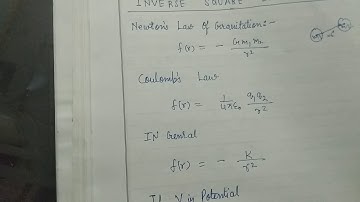 INVERSE SQUARE
Newton's Law of Gravitation:-
f(r) = - Gm₁m₂/r²
Coulomb's Law
f(r) = 1/4πε₀ q₁q₂/r²
IN Gernal
f(r) = - K/r²
in Potential